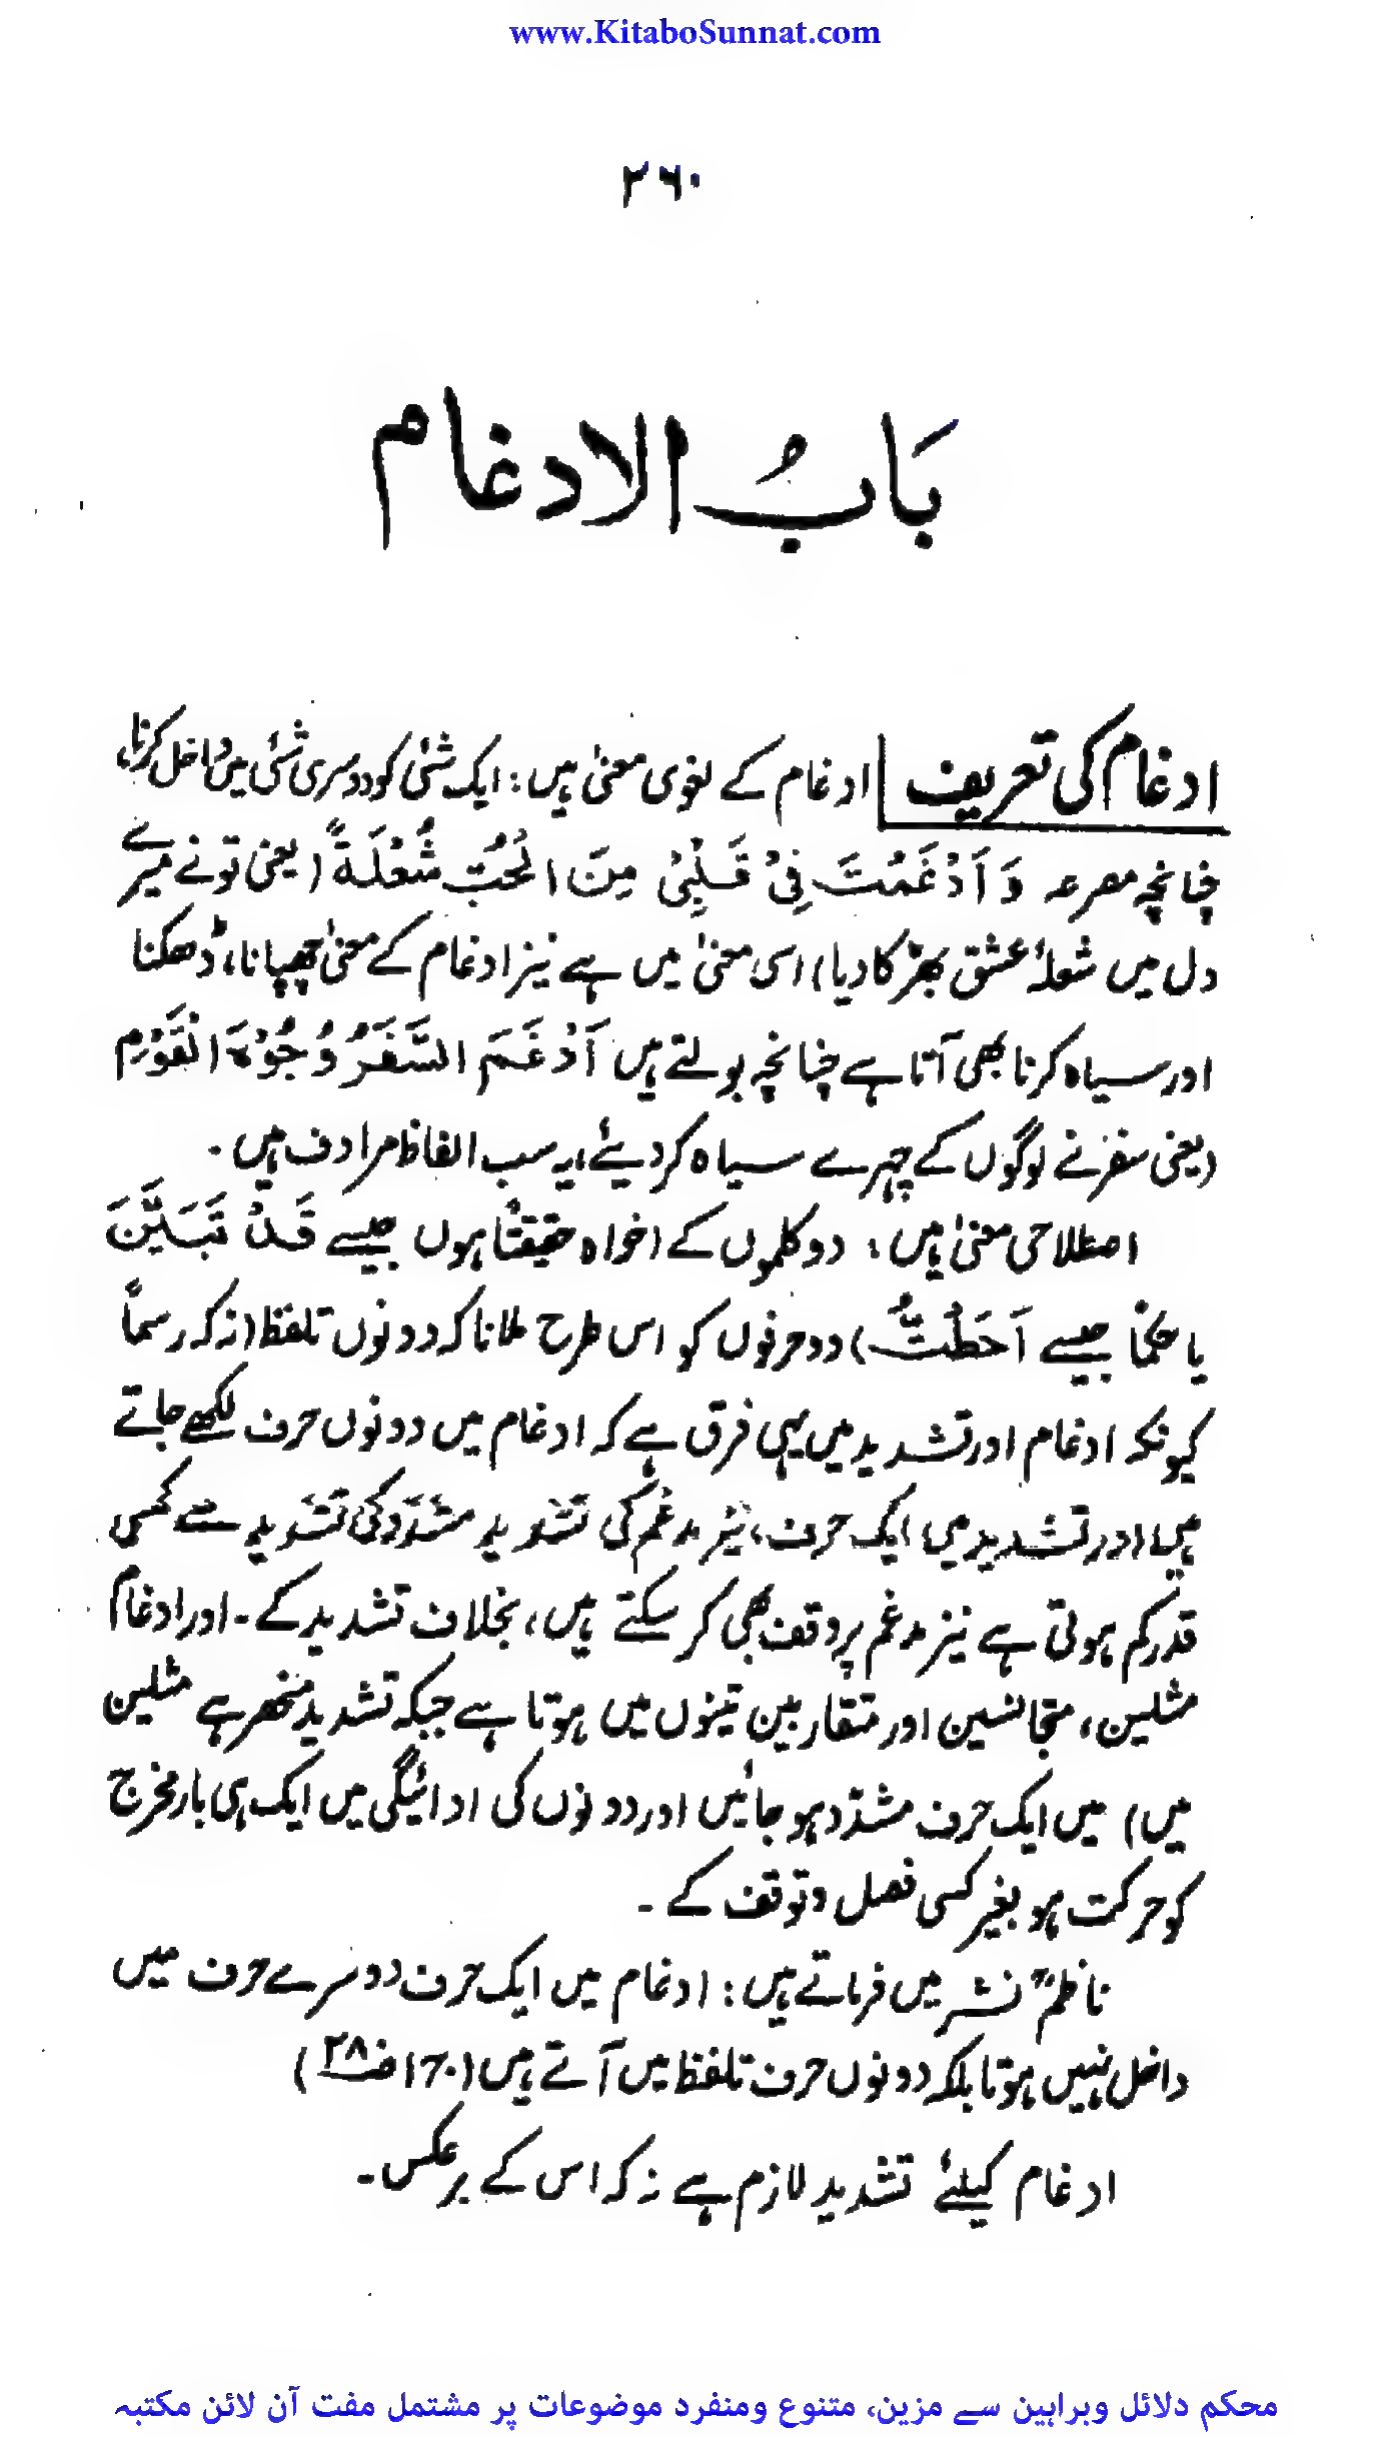 www.KitaboSunnat.com
٢٦٠
بَابُ الادغام
ادغام کی تعریف ادغام کے لغوی معنیٰ ہیں: ایک شئی کو دوسری شئی میں داخل کرنا،
چنانچہ مصرعہ وَ اَدْغَمْتَ فِیْ قَلْبِیْ مِنَ الْحُبِّ شُعْلَةً (یعنی تو نے میرے
دل میں شعلۂ عشق بھڑکا دیا) اسی معنیٰ میں ہے نیز ادغام کے معنیٰ چھپانا، ڈھکنا
اور سیاہ کرنا بھی آتا ہے چنانچہ بولتے ہیں اَدْغَمَ السَّفَرُ وُجُوْهَ الْقَوْمِ
(یعنی سفر نے لوگوں کے چہرے سیاہ کر دیئے، یہ سب الفاظ مرادف ہیں۔
اصطلاحی معنیٰ ہیں: دو کلموں کے (خواہ حقیقتًا ہوں جیسے قَدْ تَّبَیَّنَ
یا حکمًا جیسے اَحَطْتُّ) دو حرفوں کو اس طرح ملانا کہ دونوں تلفظ (نہ کہ رسماً
کیونکہ ادغام اور تشدید میں یہی فرق ہے کہ ادغام میں دونوں حرف لکھے جاتے
ہیں اور تشدید میں ایک حرف، نیز مدغم کی تشدید مشدّد کی تشدید سے کسی
قدر کم ہوتی ہے نیز مدغم پر وقف بھی کر سکتے ہیں، بخلاف تشدید کے۔ اور ادغام
مثلین، متجانسین اور متقاربین تینوں میں ہوتا ہے جبکہ تشدید منحصر ہے مثلین
میں) میں ایک حرف مشدّد ہو جائیں اور دونوں کی ادائیگی میں ایک ہی بار مخرج
کو حرکت ہو بغیر کسی فصل و توقف کے ۔
ناظمؒ نشر میں فرماتے ہیں: ادغام میں ایک حرف دوسرے حرف میں
داخل نہیں ہوتا بلکہ دونوں حرف تلفظ میں آتے ہیں (
ادغام کیلئے تشدید لازم ہے نہ کہ اس کے برعکس۔
محکم دلائل وبراہین سے مزین، متنوع ومنفرد موضوعات پر مشتمل مفت آن لائن مکتبہ